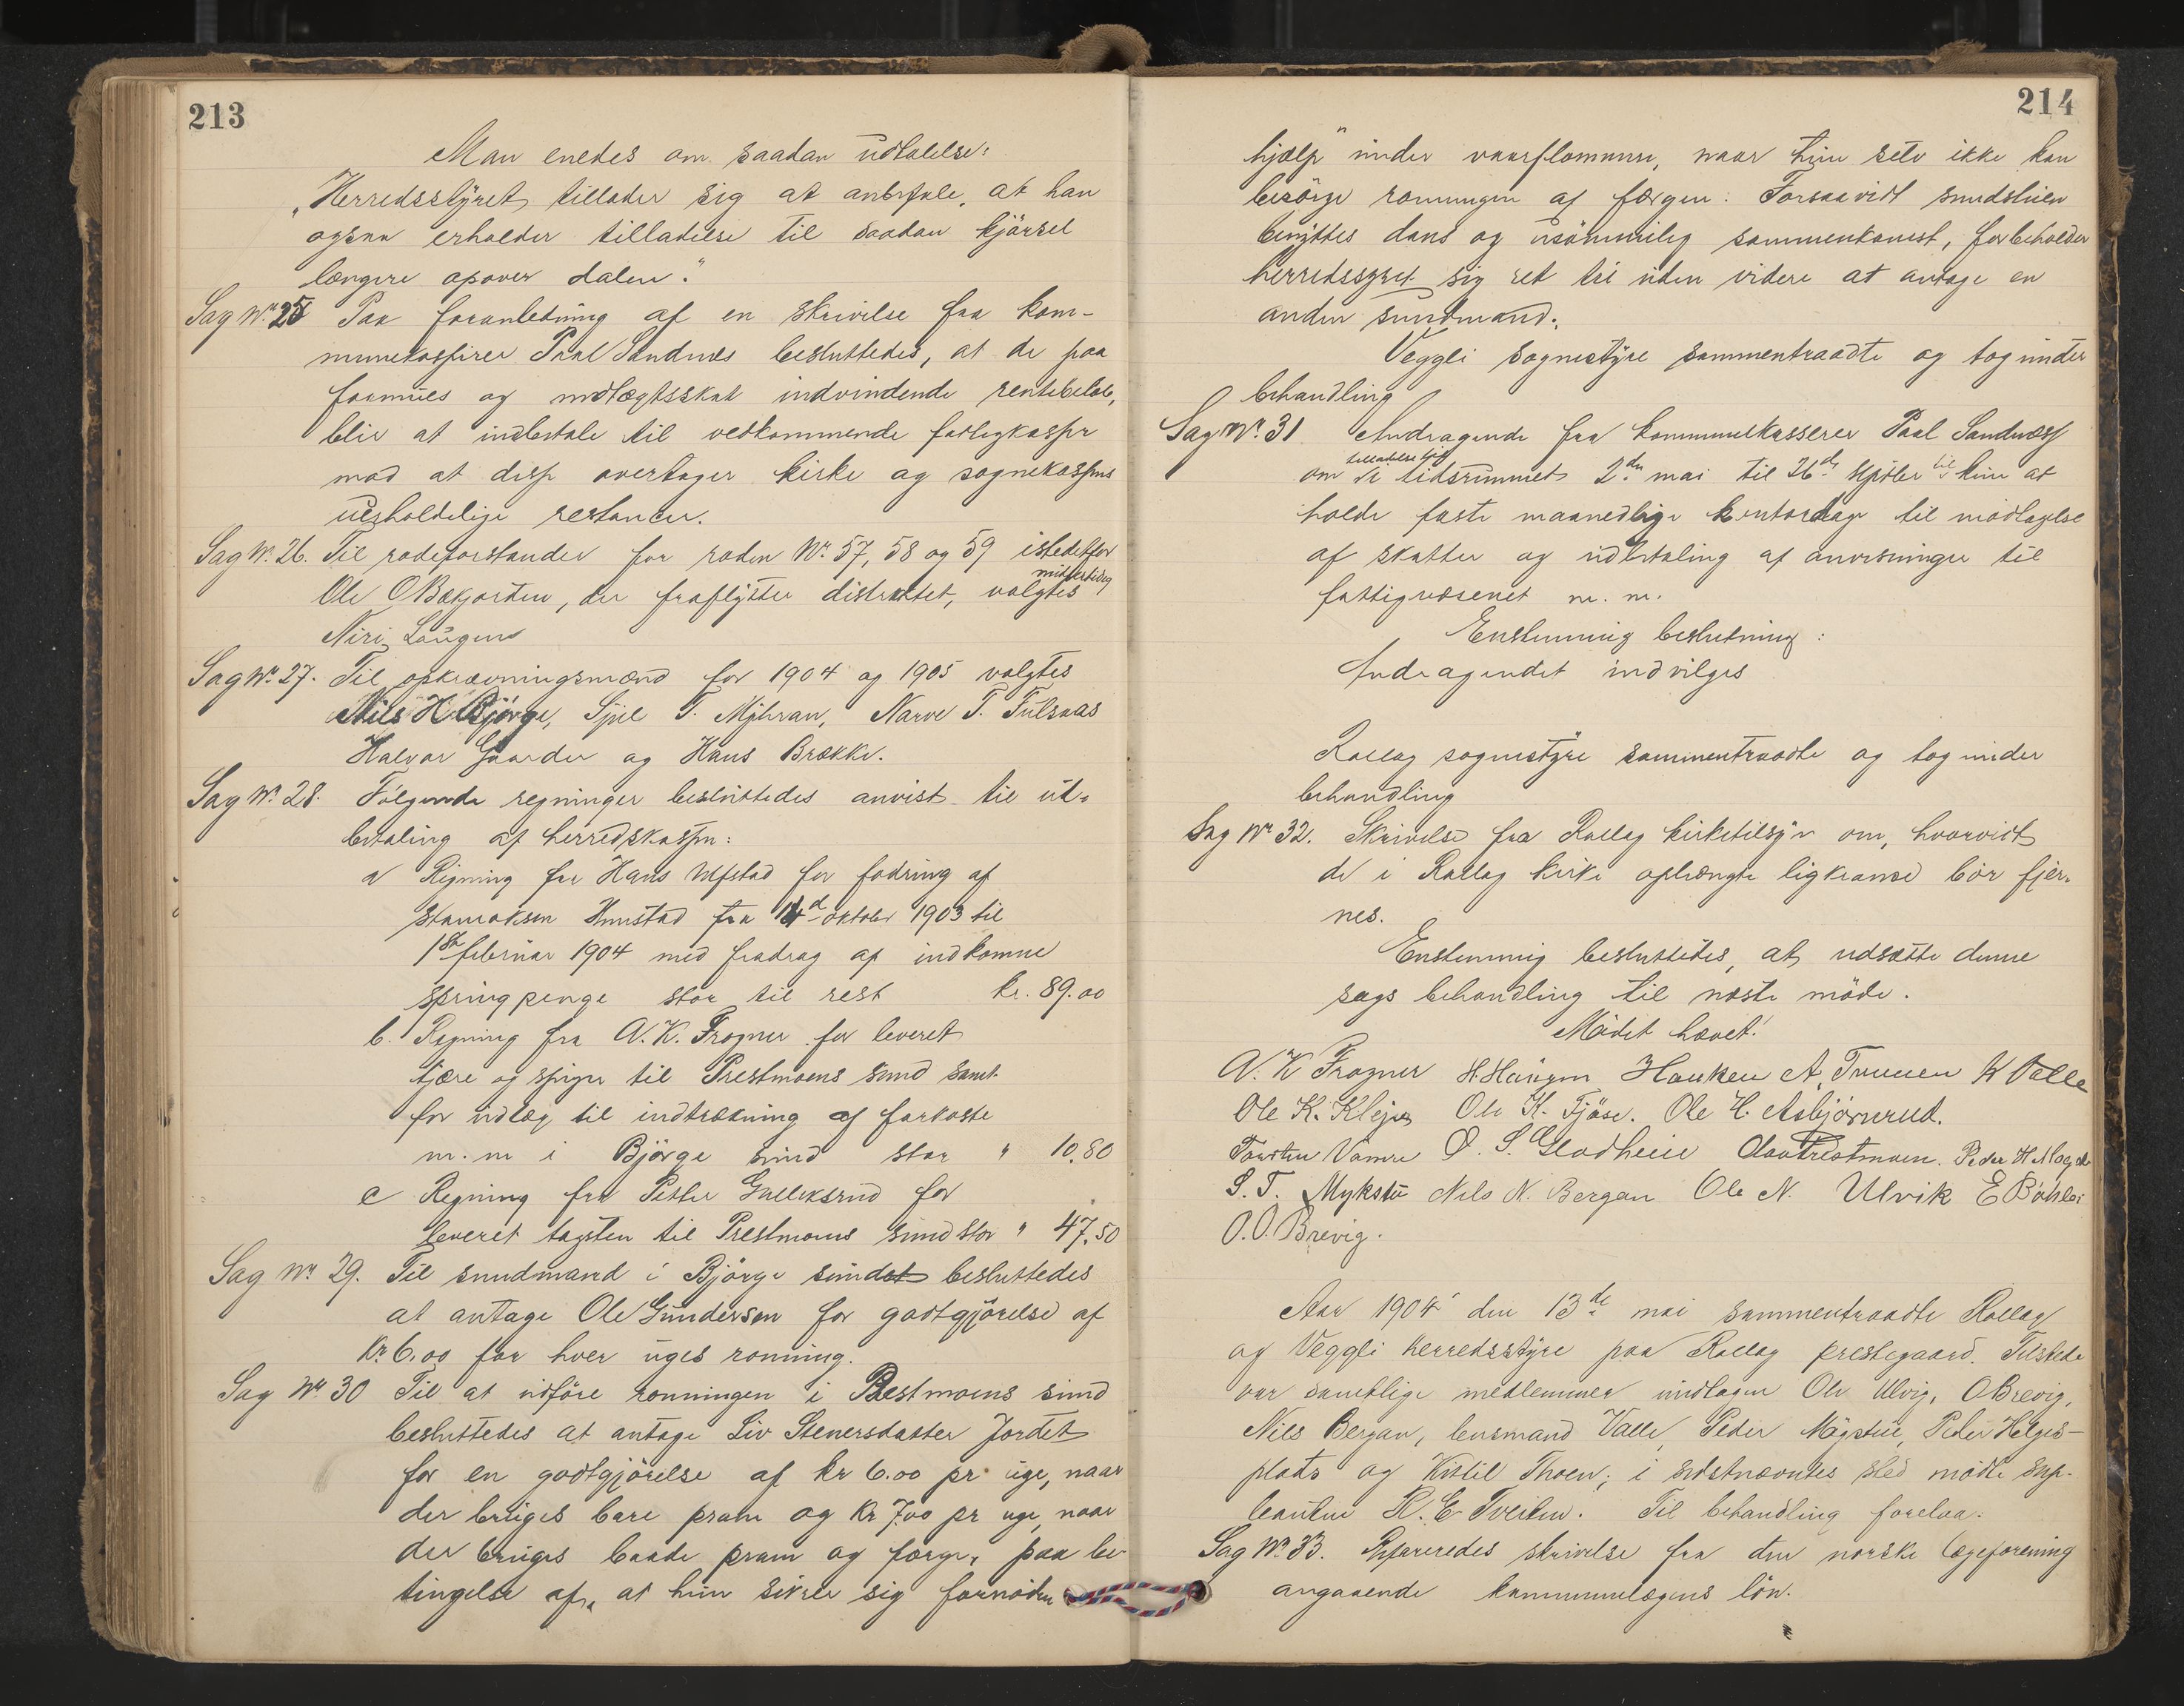 213
Man enedes om saadan udtalelse:
„Herredsstyret tillader sig at anbefale, at han
ogsaa erholder tilladelse til saadan kjörsel
længere opover dalen."
Sag Nr. 25 Paa foranledning af en skrivelse fra kom-
munekasserer Paal Sandnes besluttedes, at de paa
formues og indtægtsskat indvindende rentebelöb,
blir at indbetale til vedkommende fattigkasse
mod at disse overtager kirke og sognekassens
uerholdelige restancer.
Sag Nr. 26. Til rodeforstander for roden Nr. 57, 58 og 59 istedetfor
Ole O Bakjorden, der fraflytter distriktet, valgtes midlertidig
Niri Laugen
Sag Nr. 27. Til opkrævningsmænd for 1904 og 1905 valgtes
Nils H Björge, Sjul T. Myhran, Narve T. Fulsaas
Halvor Gaarder og Hans Brække.
Sag Nr. 28. Följgende regninger besluttedes anvist til ud-
betaling af herredskassen:
a Regning fra Hans Ulfstad for fodring af
stamoksen Hunstad fra 14d oktober 1903 til
1ste februar 1904 med fradrag af indkomne
springpenge stor til rest kr. 89.00
b. Regning fra A. K. Frogner for leveret
tjære og spiger til Prestmoens sund samt
for udlæg til indtrækning af farkoste
m. m i Björge sund stor " 10.80
c Regning fra Petter Gulliksrud for
leveret tagsten til Prestmoens sund stor " 47.50
Sag Nr. 29. Til sundmand i Björge sundet besluttedes
at antage Ole Gundersen for godtgjörelse af
Kr 6.00 for hver uges roning.
Sag Nr. 30 Til at udföre roningen i Prestmoens sund
besluttedes at antage Liv Stenersdatter Jordet
for en godtgjörelse af kr 6.00 pr uge, naar
der bruges bare pram og Kr 7.00 pr uge, naar
der bruges baade pram og færge, paa be-
tingelse af, at hun sikrer sig fornöden
214
hjælp under vaarflommene, naar hun selv ikke kan
besörge roningen af færgen. Forsaavidt sundstuen
benyttes dans og usömmelig sammenkomst, forbeholder
herredsstyret sig ret til uden videre at antage en
anden sundmand.
Veggli sognestyre sammentraadte og tog under
behandling
Sag Nr. 31 Andragende fra kommunekasserer Paal Sandnes
om tilladelse til i tidsrummet 2den mai til 26de september kun at
holde faste maanedlige kontordage til modtagelse
af skatter og udbetaling af anvisninger til
fattigvæsenet m. m.
Enstemmig beslutning:
Andragendet indvilges
Rollag sognestyre sammentraadte og tog under
behandling
Sag Nr. 32. Skrivelse fra Rollag kirketilsyn om, hvorvidt
de i Rollag kirke ophængte ligkranse bör fjer-
nes.
Enstemmig besluttedes, at udsætte denne
sags behandling til næste möde.
Mödet hævet!
A. K Frogner H. Haugen Hauken A. Truuen K Valle
Ole K. Klejva Ole K. Fjöse. Ole H. Asbjörnrud.
Torsten Vamre O. S. Gladheim Olav Prestmoen. Peder H
S. T. Mykstu Nils N. Bergan Ole N. Ulvik E Böhler
O. O. Brevig.
Aar 1904 den 13de mai sammentraadte Rollag
og Veggli herredsstyre paa Rollag prestegaard. Tilstede
var samtlige medlemmer undtagen Ole Ulvig, O Brevig,
Nils Bergan, lensmand Valle, Peder Mögstue, Peder Helges-
plads og Kittil Thoen; i sidstnævntes sted mödte sup-
leanten K. E Tveiten. Til behandling forelaa:
Sag Nr. 33. Refereredes skrivelse fra den norske lægeforening
angaaende kommunelægens lön.